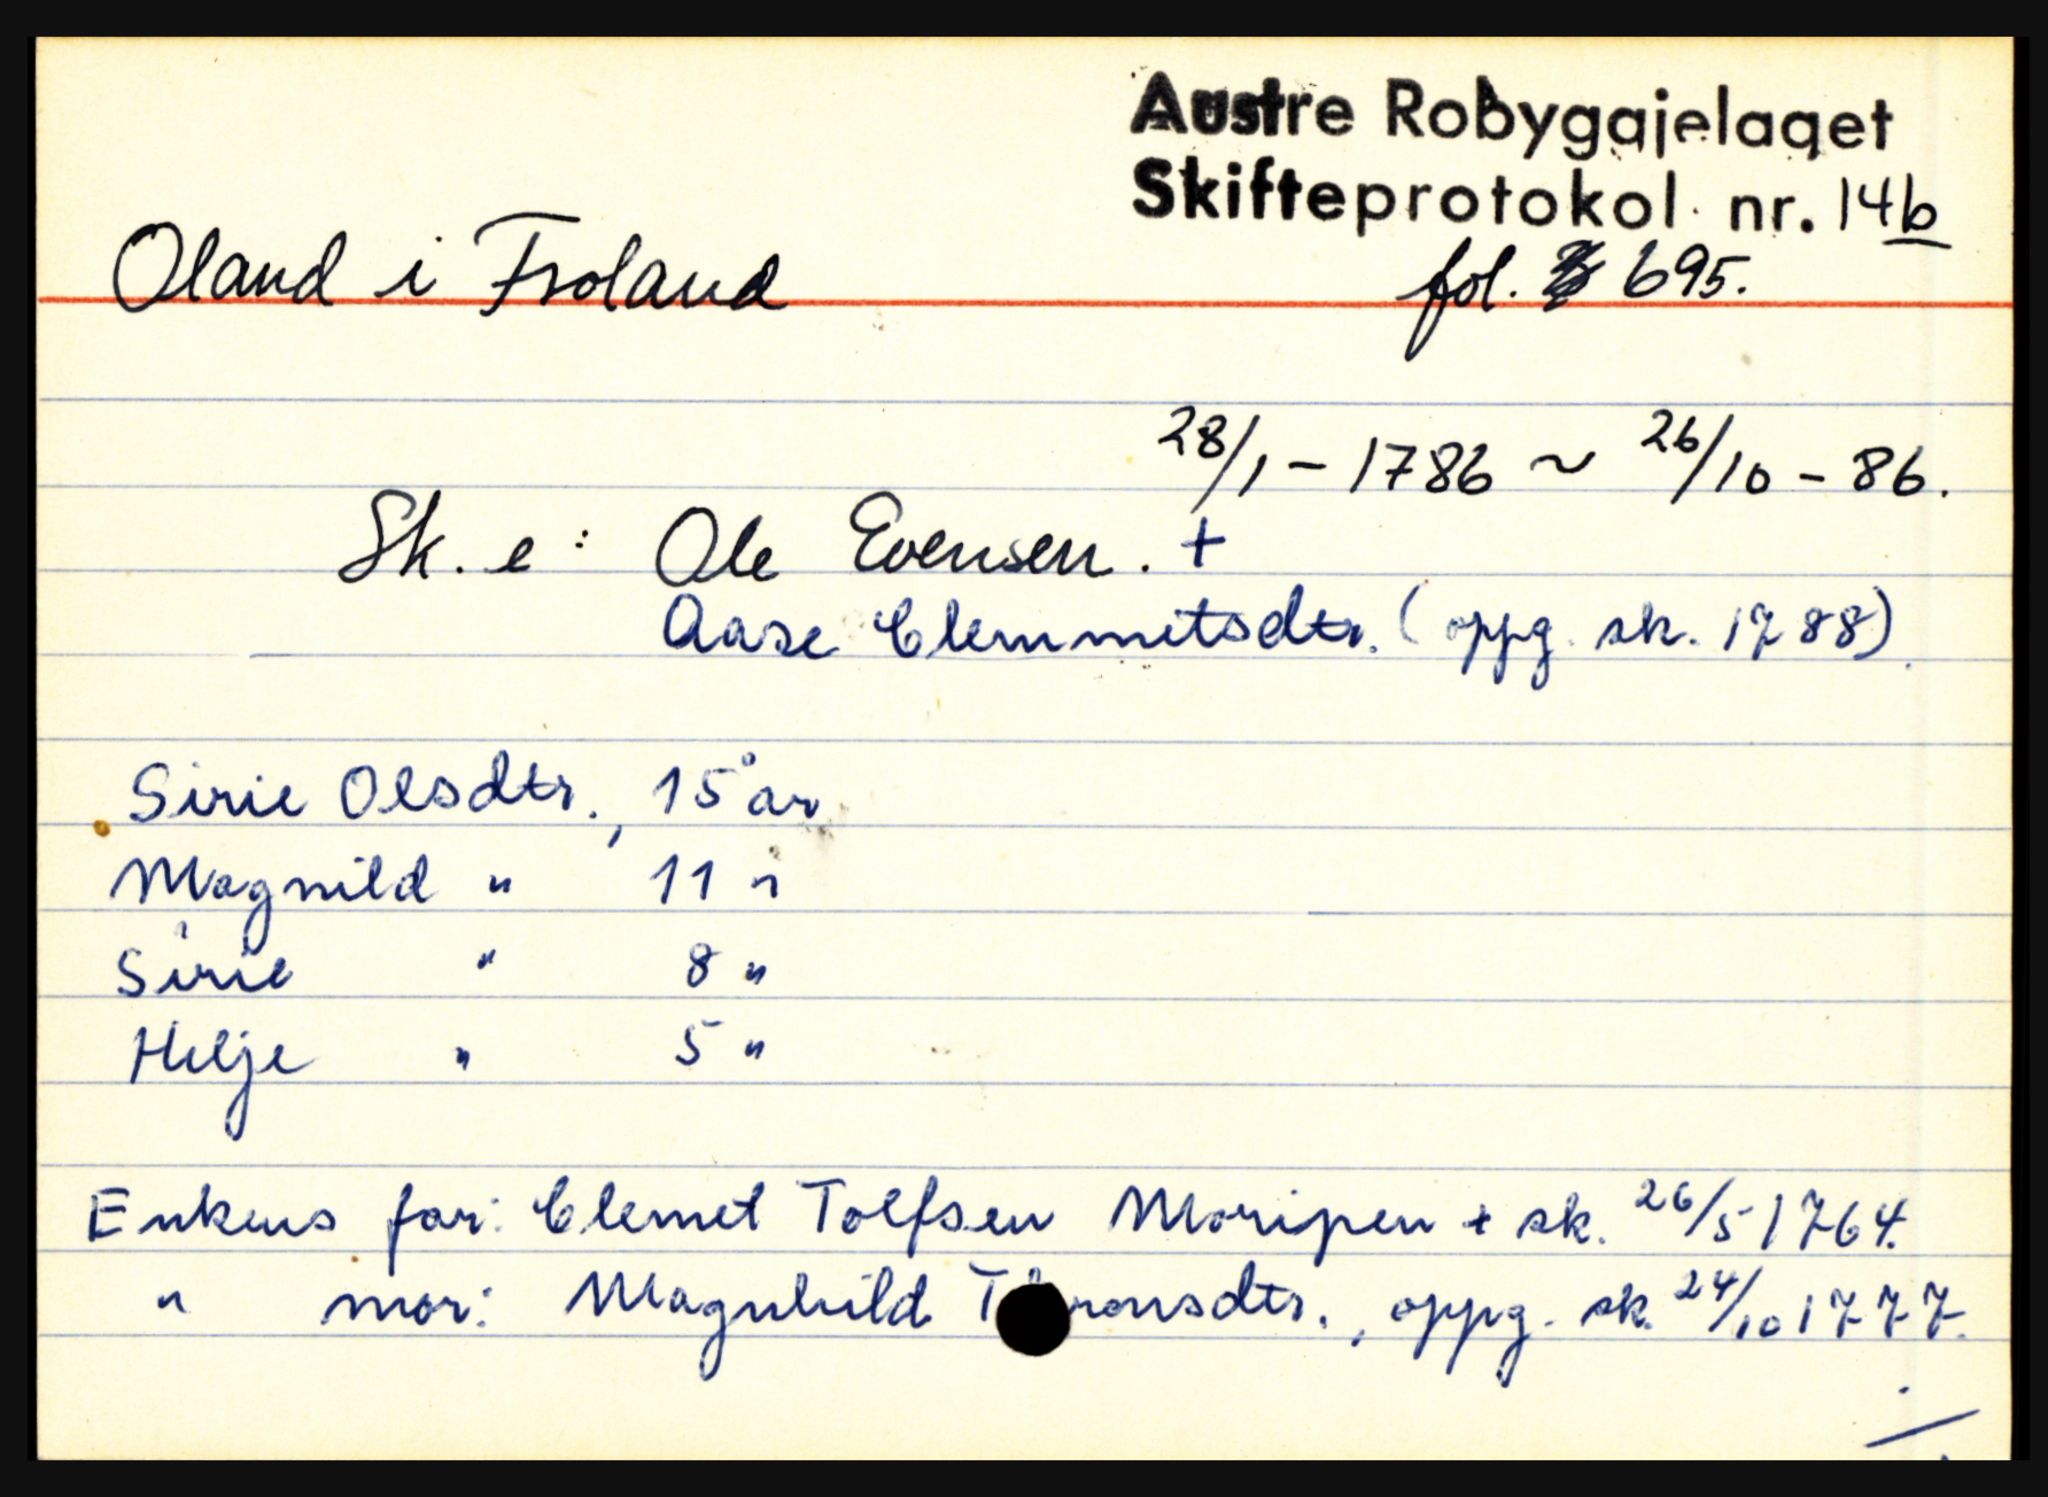 Austre Robygdjelaget
Skifteprotokol nr. 14b
Oland i Froland
fol. 695.
28/1 - 1786 ~ 26/10 - 86.
Sk. e: Ole Evensen. +
Aase Clemmetsdtr. (oppg. sk. 1788)
Sirie Olsdtr., 15 år
Magnild " 11 "
Sirie " 8 "
Helje " 5 "
Enkens far: Clemet Tolfsen Moripen + sk. 26/5 1764.
" mor: Magnhild , oppg. sk. 24/10 1777.